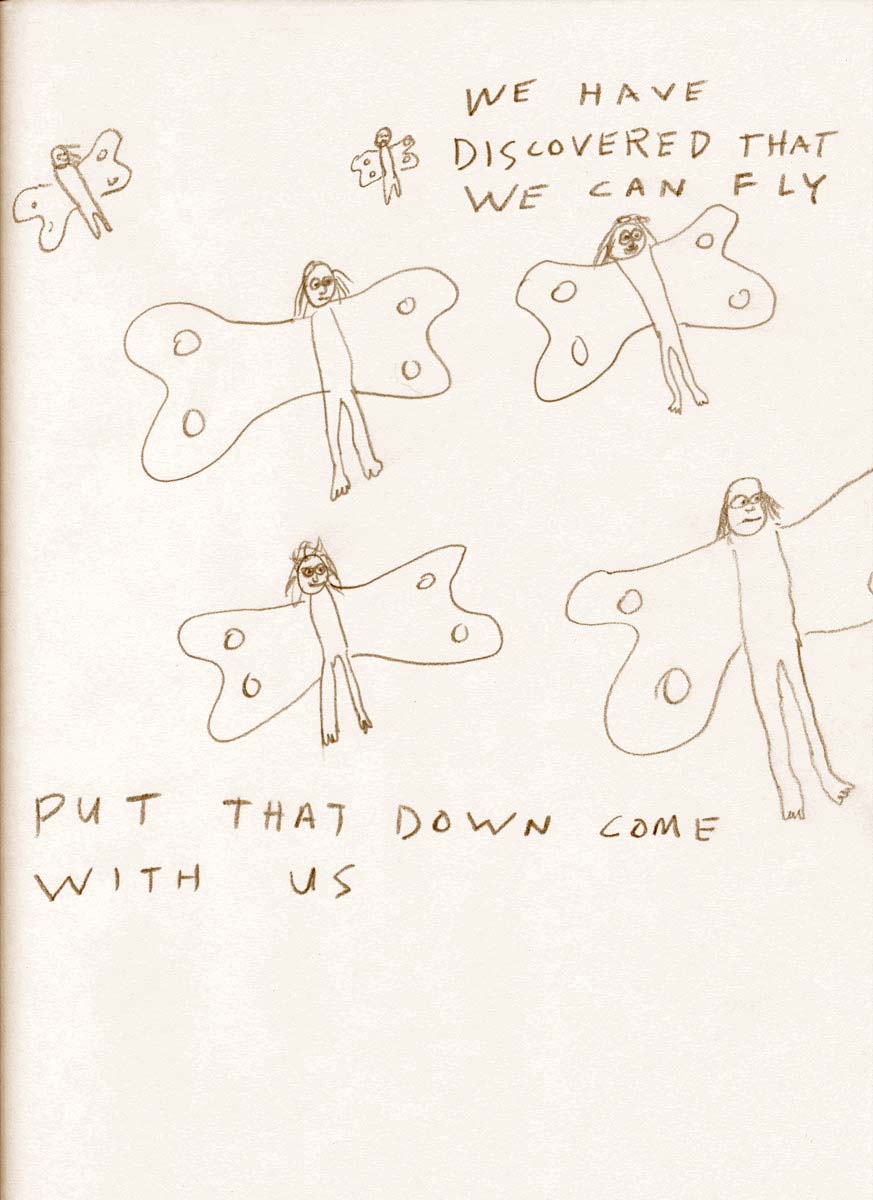 WE HAVE
DISCOVERED THAT
WE CAN FLY
PUT THAT DOWN COME
WITH US